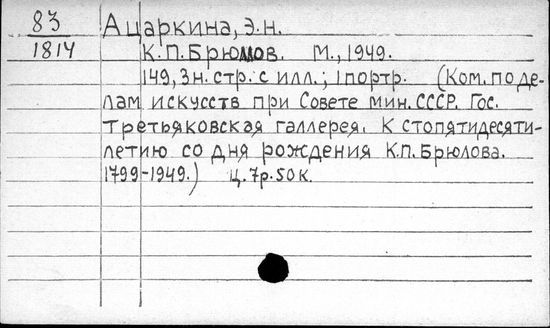 83 Ацаркина, Э.Н.
1814 К.П. Брюлов. М., 1949.
149, 3 н. стр. с илл.; 1 портр. (Ком. по де-
лам искусств при Совете мин. СССР. Гос.
Третьяковская галлерея. К стопятидесяти-
летию со дня рождения К.П. Брюлова.
1799-1949.) ц. 7р. 50к.